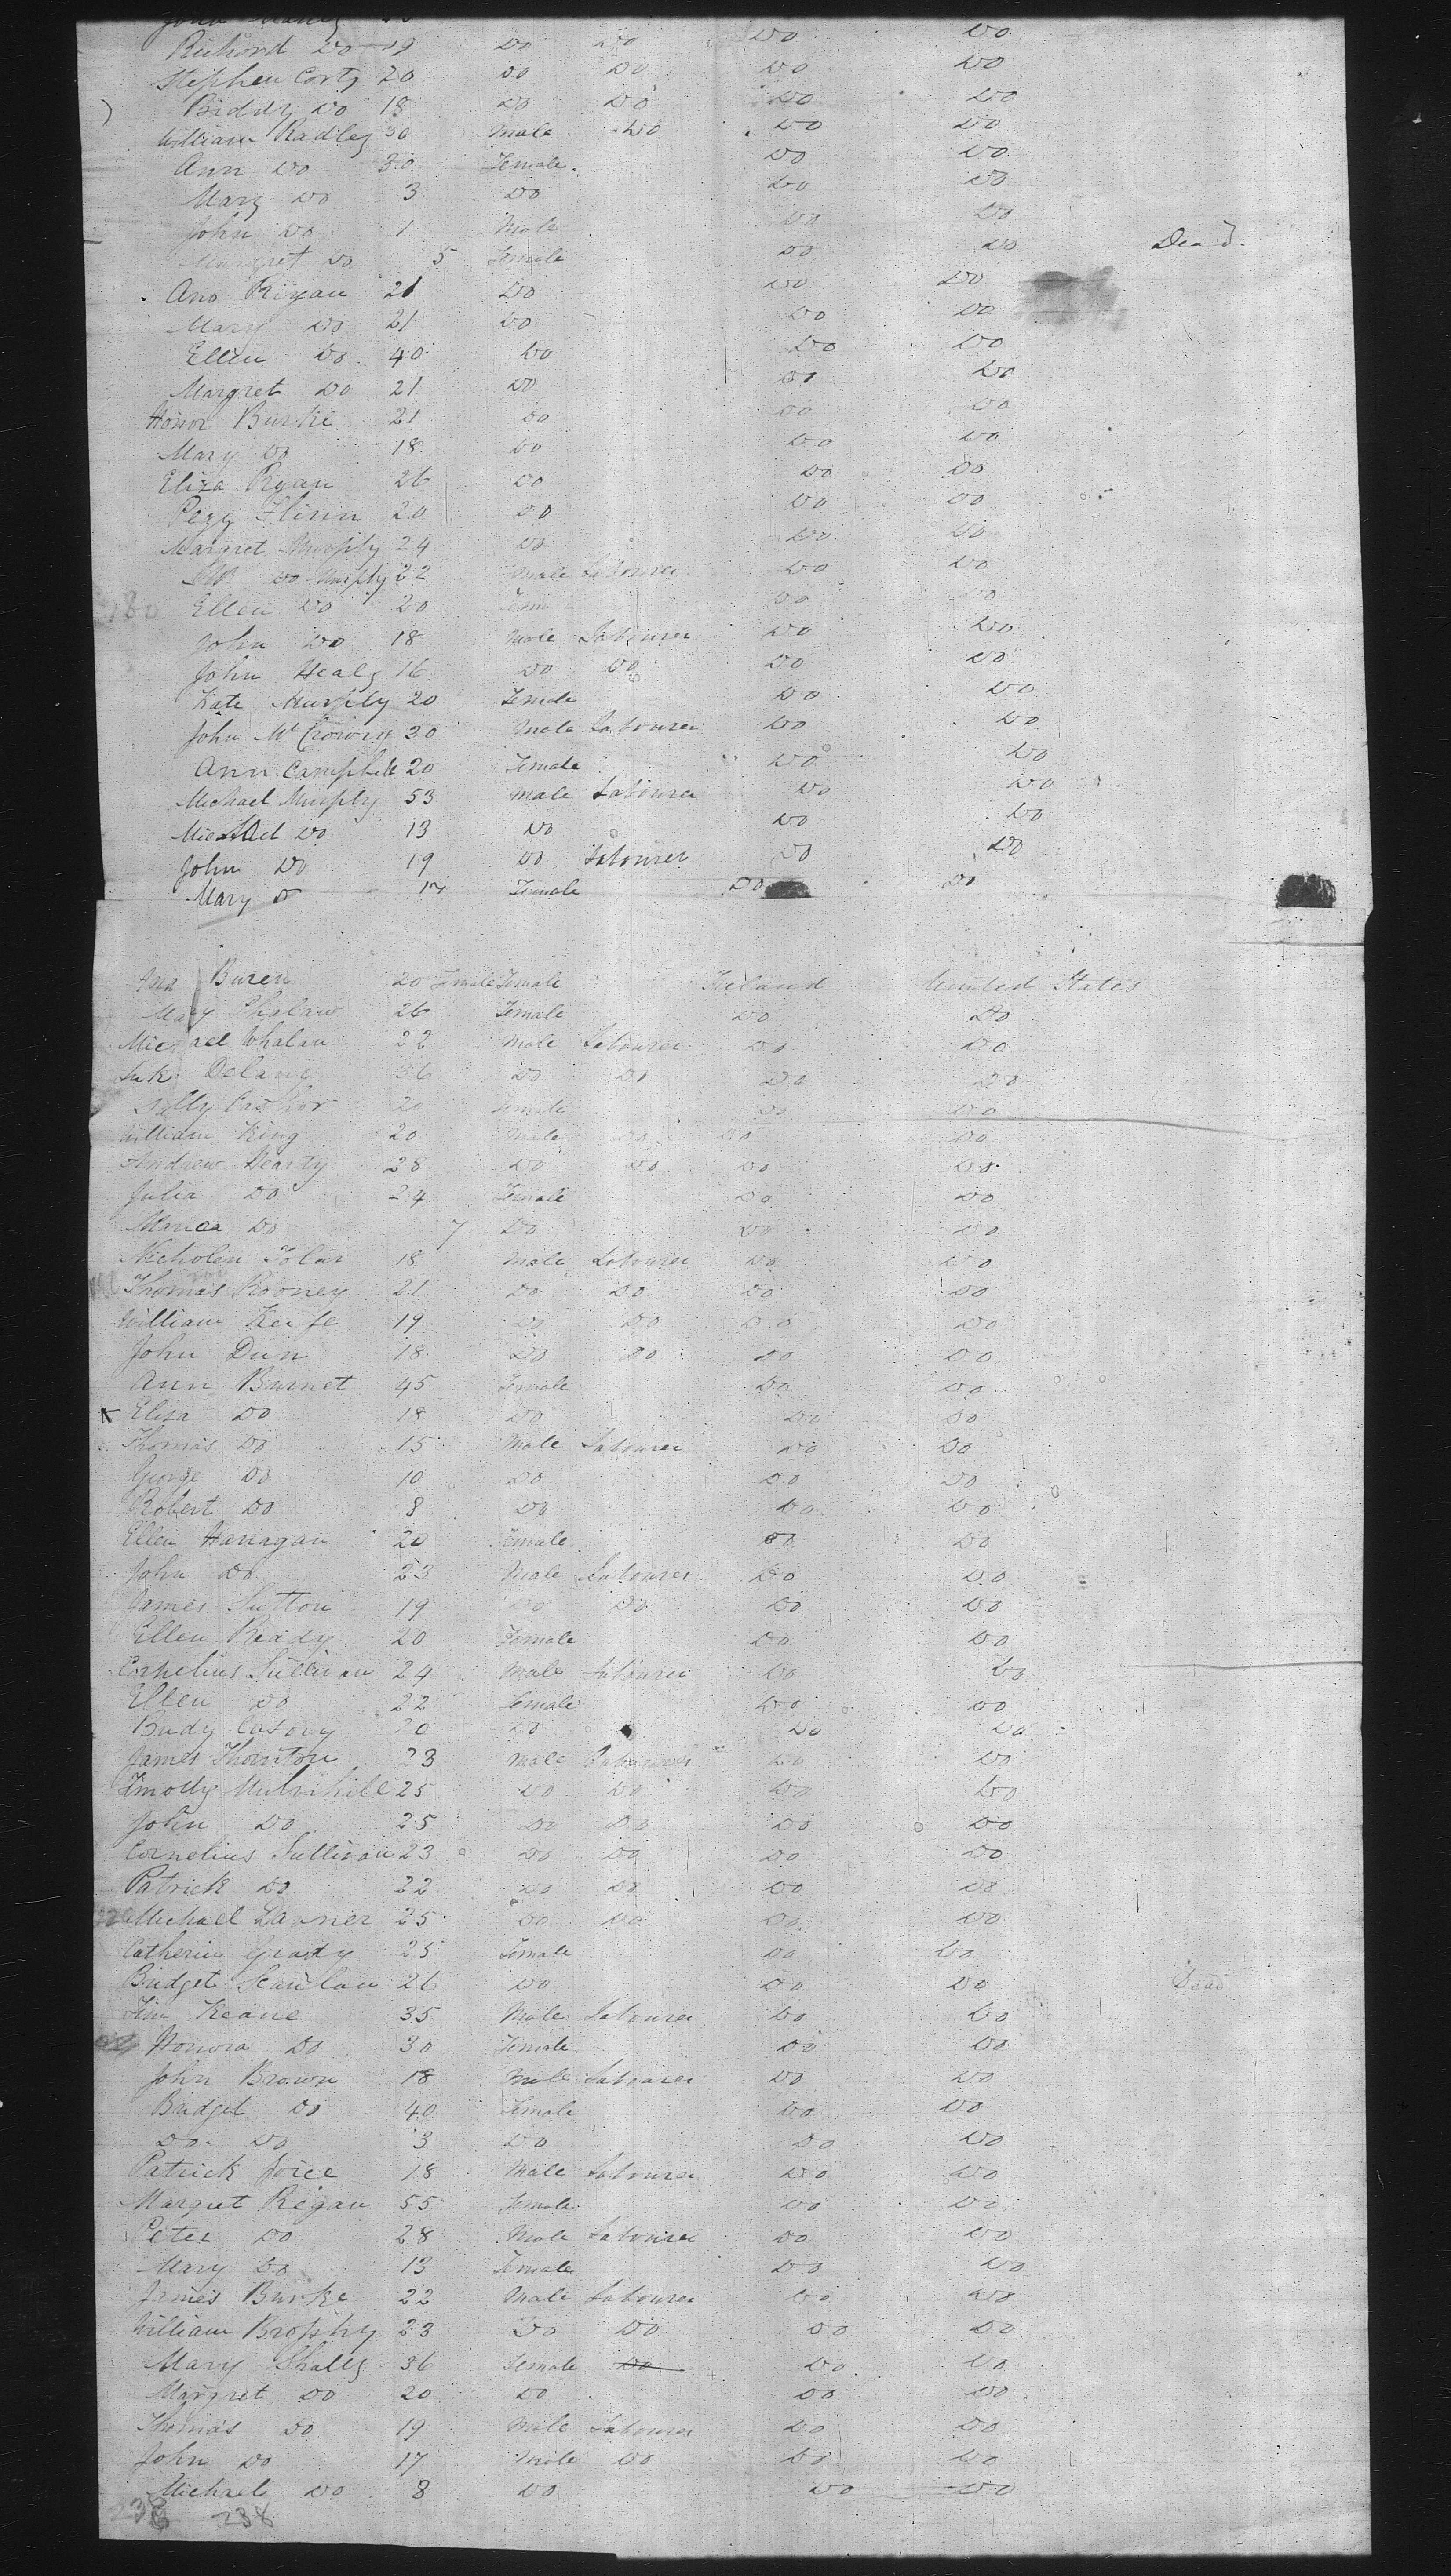 Richard Do 19 Do Do Do Do
Stephen Corty 20 Do Do Do Do
Biddy Do 18 Do Do Do Do
William Radley 30 Male Do Do Do
Ann Do 30 Female Do Do
Mary Do 3 Do Do Do
John Do 1 Male Do Do
Margret Do 5 Female Do Do Dead.
Ann Rigau 21 Do Do Do
Mary Do 21 Do Do Do
Ellen Do 40 Do Do Do
Margret Do 21 Do Do Do
Honor Burke 21 Do Do Do
Mary Do 18 Do Do Do
Eliza Ryan 26 Do Do Do
Pegy Flinn 20 Do Do Do
Margret Murphy 24 Do Do Do
Do Murphy 22 Male Labourer Do Do
180 Ellen Do 20 Female Do Do
John Do 18 Male Labourer Do Do
John Healy 16 Do Do Do Do
Kate Murphy 20 Female Do Do
John 20 Male Labourer Do Do
Ann Campbell 20 Female Do Do
Michael Murphy 53 Male Labourer Do Do
Michael Do 13 Do Do Do
John Do 19 Do Labourer Do Do
Mary Do 17 Female Do Do
Buren 20 Female Female Ireland United States
Mary Phalaw 26 Female Do Do
Michael Whalan 22 Male Labourer Do Do
Delany 36 Do Do Do Do
20 Female Do Do
William King 20 Male Do Do Do
Andrew Hearty 28 Do Do Do Do
Julia Do 24 Female Do Do
Do 7 Do Do Do
Nicholen Tolar 18 Male Labourer Do Do
Thomas Rooney 21 Do Do Do Do
William Keife 19 Do Do Do Do
John Dun 18 Do Do Do Do
Ann Burnet 45 Female Do Do
Eliza Do 18 Do Do Do
Thomas Do 15 Male Labourer Do Do
George Do 10 Do Do Do
Robert Do 8 Do Do Do
Ellen Hanagan 20 Female Do Do
John Do 23 Male Labourer Do Do
James Sutton 19 Do Do Do Do
Ellen Ready 20 Female Do Do
Cornelius Sullivan 24 Male Labourer Do Do
Ellen Do 22 Female Do Do
Budy 20 Do Do Do
James Thornton 23 Male Labourer Do Do
Timothy Mulvihill 25 Do Do Do Do
John Do 25 Do Do Do Do
Cornelius Sullivan 23 Do Do Do Do
Patrick Do 22 Do Do Do Do
Michael 25 Do Do Do Do
Catherin Grady 25 Female Do Do
Bridget Scanlan 26 Do Do Do Dead
Tim Keane 35 Male Labourer Do Do
Honora Do 30 Female Do Do
John Brown 18 Male Labourer Do Do
Bridget Do 40 Female Do Do
Do Do 3 Do Do Do
Patrick Joice 18 Male Labourer Do Do
Margret Regan 55 Female Do Do
Peter Do 28 Male Labourer Do Do
Mary Do 13 Female Do Do
James Burke 22 Male Labourer Do Do
William Brophy 23 Do Do Do Do
Mary Shally 36 Female Do Do Do
Margret Do 20 Do Do Do
Thomas Do 19 Male Labourer Do Do
John Do 17 Male Do Do Do
Michael Do 8 Do Do Do
238 238